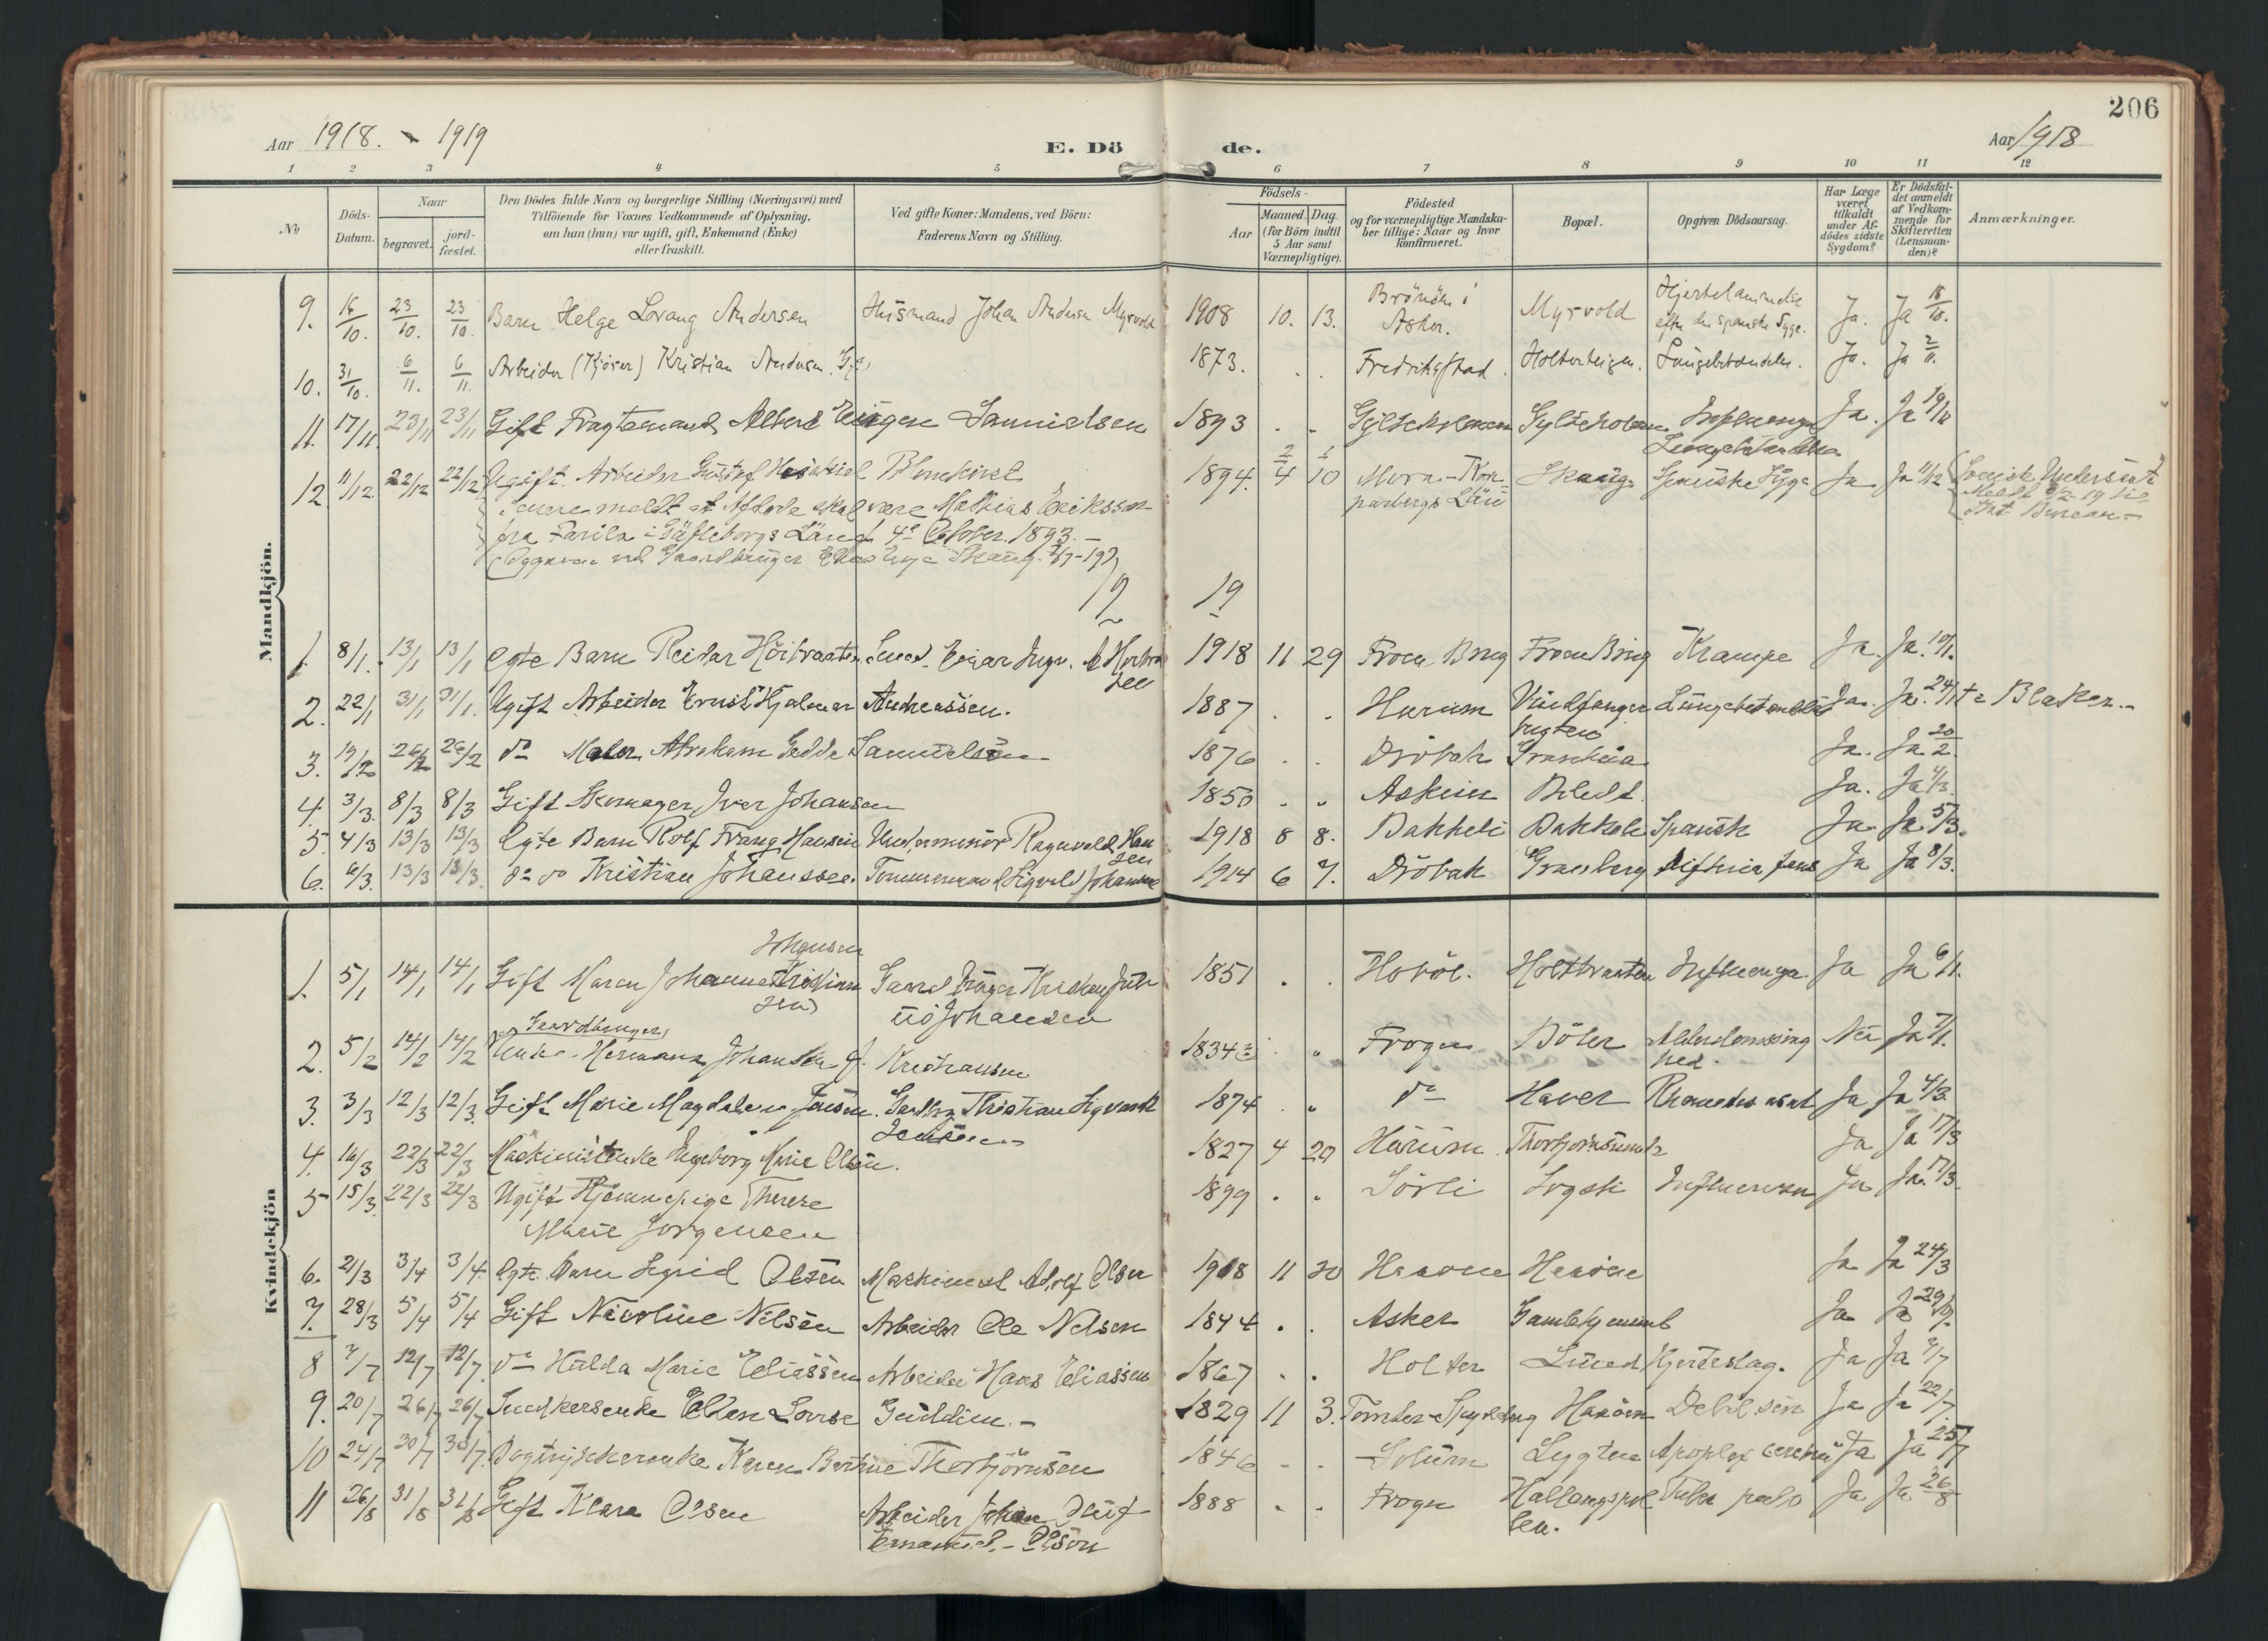 206
Aar 1918. - 1919
E. Döde.
Aar 1918
1 2 3 4 5 6 7 8 9 10 11 12
№
Döds-Datum.
Naar
begravet.
jord-fæstet.
Den Dödes fulde Navn og borgerlige Stilling (Næringsvei) med
Tilföiende for Voxnes Vedkommende af Oplysning,
om han (hun) var ugift, gift, Enkemand (Enke)
eller fraskilt.
Ved gifte Koner: Mandens, ved Börn:
Faderens Navn og Stilling.
Födsels-
Aar
Maaned. Dag.
(for Börn indtil
5 Aar samt
Værnepligtige).
Födested
og for værnepligtige Mandska-
ber tillige: Naar og hvor
konfirmeret.
Bopæl.
Opgiven Dödsaarsag.
Har Læge
været
tilkaldt
under Af-
dödes sidste
Sygdom?
Er Dödsfal-
det anmeldt
af Vedkom-
mende for
Skifteretten
(Lensman-
den)?
Anmærkninger.
Mandkjön.
9. 16/10. 23/10. 23/10. Barn Helge Lovang Andersen Husmand Johan Andersen Myrvold 1908 10. 13. Brönöen i Asker. Myrvold efter den spanske Syge. Ja. Ja 18/10.
10. 31/10. 6/11. 6/11. Arbeider Kristian Andersen. 1873. Fredrikstad. Holterteigen. Lungebetændelse. Ja. Ja 2/11.
11. 17/11 23/11 23/11 Gift Fragtemand Albert Samuelsen 1893 Gylteholmen Gylteholmen Influenza Lungebetændelse Ja. Ja 19/11
12 11/12. 22/12 22/12 Ugift. Arbeider Gustaf Blomkvist 1894. 4 10 Mora - Kopparbergs Län Skaug Spanske Syge Ja Ja 11/12 Svensk Undersaat
Senere meldt at Afdøde skal være Mathias Eriksson
fra Färila i Gäfleborgs Län f. 4de October 1893. -
19 19
1. 8/1. 13/1 13/1 Egte Barn Reidar Hortvaaten 1918 11 29 Froen Brug Froen Brug Krampe Ja. Ja. 10/1.
2. 22/1 31/1 31/1. Ugift Arbeider Ernst Hjalmar Andreassen. 1887 Hurum Vindfangerbugten Lungebetændelse Ja. Ja. 24/1 Blaker. -
3. 19/2 26/2 26/2 do Maler Abraham Gedde Samuelsen 1876 Dröbak Ja. Ja 20/2.
4. 3/3. 8/3 8/3 Gift Skomager Iver Johansen 1850 Askim Ja. Ja 4/3.
5. 4/3 13/3 13/3 Egte Barn Rolf Frang Hansen Underminör Ragnvald Hansen 1918 8 8. Bakkeli Bakkeli Spansk Ja. Ja. 5/3.
6. 6/3. 13/3 13/3. do do Kristian Johanssen. Tömmermand Sigvald Johansen 1914 6 7. Dröbak Granberg Ja Ja 8/3.
Kvindekjön
1. 5/1 14/1 14/1 Gift Maren Johanne Johansen 1851 Hoböl. Holtbraaten Influenza. Ja Ja 6/1.
2. 5/2 14/2 14/2 Gaardbruger Enke Hermana Johanne Kristiansen 1834 Frogn Böler Alderdomssvaghed. Nei Ja 7/1.
3. 3/3 12/3 12/3. Gift Marie Magdalene Jensen. Gaardbr. Christian Sigvardt Jensen 1874 do Haver Ja Ja 4/3.
4. 16/3 22/3 22/3 Maskinistenke Ingeborg Marie Olsen. 1827 4 20 Hurum Ja Ja 17/3
5 15/3. 22/3 22/3 Ugift Hjemmepige Therese Marie Jörgensen 1899 Sörli Influenza Ja Ja. 17/3.
6. 21/3 3/4 3/4. Egte Barn Sigrid Olsen Maskinist Adolf Olsen 1918 11 30 Haaöen Haaöen Ja Ja 24/3
7. 28/3 5/4 5/4 Gift Nicoline Nelsen Arbeider Ole Nelsen 1844 Asker Ja Ja
8 7/7 12/7 12/7. do Hulda Marie Eliassen Arbeider Hans Eliassen 1867 Holter Lund Hjerteslag. Ja Ja 7/7
9. 20/7 26/7 26/7 Snedkersenke Ellen Lovise Guldim. - 1829 11 3. Haaöen Ja Ja 22/7
10 24/7 30/7 30/7. Bogtrykkerenke Karen Bertine Thorbjörnsen 1846 Solum Lygten Apoplex cerebri Ja Ja 25/7
11 26/8 31/8 31/8 Gift Klara Olsen Arbeider Johan Oluf Emanuel. - Olsen 1888 Frogn Hallangspollen. Ja Ja 26/8